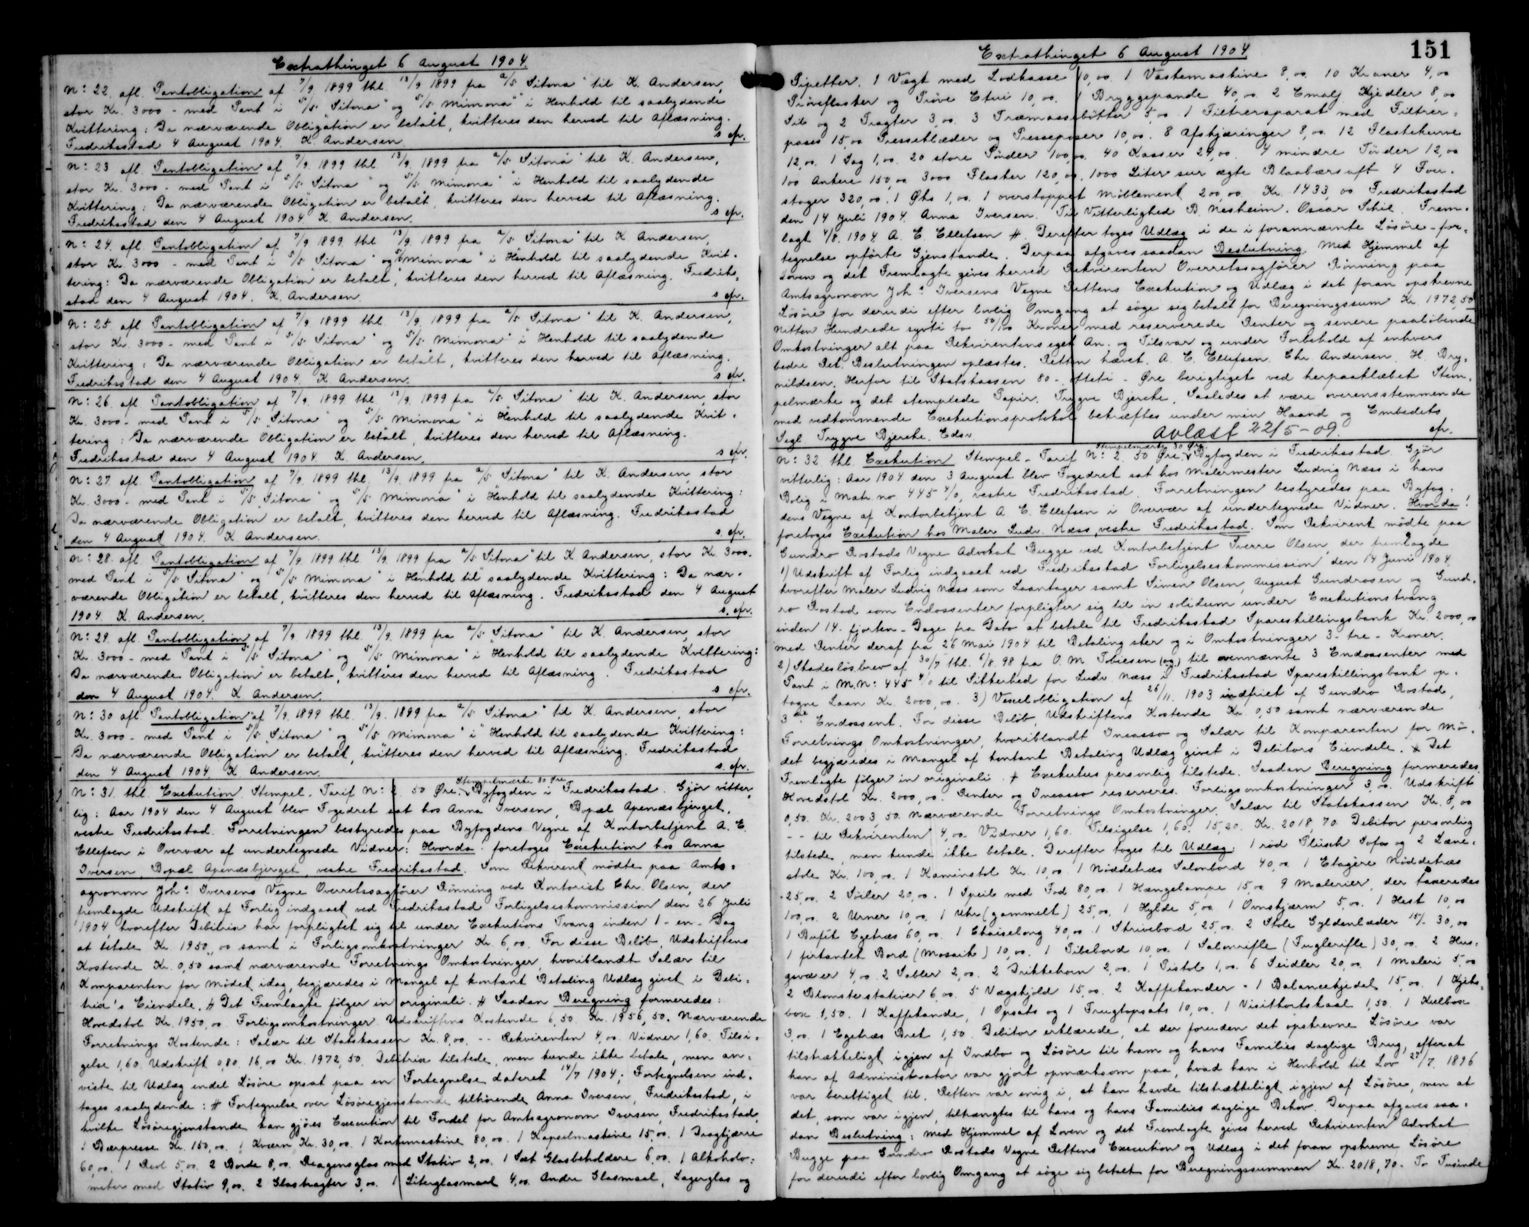 Extrathinget 6 August 1904
N: 22. afl. Pantobligation af 7/9 1899 thl. 13/9 1899 fra a/s "Sitona" til K. Andersen,
stor Kr. 3000 - med Pant i s/s "Sitona" og s/s "Mimona" i Henhold til saalydende
Kvittering: Da nærværende Obligation er betalt, kvitteres den herved til Aflæsning.
Fredriksstad 4 August 1904. K. Andersen
N: 23 afl Pantobligation af 7/9 1899 thl 13/9 1899 fra a/s "Sitona" til K. Andersen,
stor Kr. 3000 - med Pant i s/s "Sitona" og s/s "Mimona" i Henhold til saalydende
Kvittering: Da nærværende Obligation er betalt, kvitteres den herved til Aflæsning.
Fredriksstad den 4 August 1904 K. Andersen.
N: 24. afl. Pantobligation af 7/9 1899 thl 13/9 1899 fra a/s "Sitona" til K. Andersen,
stor Kr. 3000 - med Pant i s/s "Sitona" og s/s "Mimona" i Henhold til saalydende Kvit-
tering: Da nærværende Obligation er betalt, kvitteres den herved til Aflæsning. Fredriks-
stad den 4 August 1904. K. Andersen.
N: 25 afl Pantobligation af 7/9 1899 thl. 13/9 1899 fra a/s "Sitona" til K. Andersen,
stor Kr. 3000 - med Pant i s/s "Sitona" og s/s "Mimona" i Henhold til saalydende
Kvittering: Da nærværende Obligation er betalt, kvitteres den herved til Aflæsning.
Fredriksstad den 4 August 1904 K. Andersen.
N: 26 afl Pantobligation af 7/9 1899 thl. 13/9 1899 fra a/s "Sitona" til K. Andersen, stor
Kr. 3000 - med Pant i s/s "Sitona" og s/s "Mimona" i Henhold til saalydende Kvit-
tering: Da nærværende Obligation er betalt, kvitteres den herved til Aflæsning.
Fredriksstad den 4 August 1904 K. Andersen.
N: 27 afl. Pantobligation af 7/9 1899 thl. 13/9 1899 fra a/s "Sitona" til K. Andersen, stor
Kr. 3000 - med Pant i s/s "Sitona" og s/s "Mimona" i Henhold til saalydende Kvittering:
Da nærværende Obligation er betalt, kvitteres den herved til Aflæsning. Fredriksstad
den 4 August 1904. K. Andersen.
N: 28 afl. Pantobligation af 7/9 1899 thl. 13/9 1899 fra a/s "Sitona" til K. Andersen, stor Kr. 3000.
med Pant i s/s "Sitona" og s/s "Mimona" i Henhold til saalydende Kvittering: Da nær-
værende Obligation er betalt, kvitteres den herved til Aflæsning. Fredriksstad den 4 August
1904 K. Andersen.
N: 29 afl. Pantobligation af 7/9 1899 thl. 13/9 1899 fra a/s "Sitona" til K. Andersen, stor
Kr. 3000 - med Pant i s/s "Sitona" og s/s "Mimona" i Henhold til saalydende Kvittering:
Da nærværende Obligation er betalt, kvitteres den herved til Aflæsning. Fredriksstad
den 4 August 1904. K. Andersen.
N: 30 afl. Pantobligation af 7/9 1899 thl. 13/9 1899 fra a/s "Sitona" til K. Andersen, stor
Kr. 3000 - med Pant i s/s "Sitona" og s/s "Mimona" i Henhold til saalydende Kvittering:
Da nærværende Obligation er betalt, kvitteres den herved til Aflæsning. Fredriksstad
den 4 August 1904 K. Andersen.
Stempelmærke 80 Øre
N: 31. thl. Exekution Stempel-Tarif N: 2 50 Øre. Byfogden i Fredriksstad. Gjör vitter-
lig: Aar 1904 den 4 August blev Fogedret sat hos Anna Iversen, Bopæl Apenæsbjerget,
vestre Fredriksstad. Forretningen bestyredes paa Byfogdens Vegne af Kontorbetjent A. E.
Ellefsen i Overvær af undertegnede Vidner: Hvorda: foretoges Exekution hos Anna
Iversen Bopæl Apenæsbjerget vestre Fredriksstad. Som Rekvirent mödte paa Amts-
agronom Johs. Iversens Vegne Overretssagförer Rönning ved Kontorist Chr. Olsen, der
fremlagde Udskrift af Forlig indgaaet ved Fredriksstad Forligelseskommission den 26 Juli
1904 hvorefter Debitrix har forpligtet sig til under Exekutions Tvang inden 1 - en - Dag
at betale Kr. 1950,00 samt i Forligsomkostninger Kr. 6,00. For disse Belöb, Udskriftens
Kostende Kr. 0,50 samt nærværende Forretnings Omkostninger, hvoriblandt Salær til
Komparenten for mödet idag, begjæredes i Mangel af kontant Betaling Udlæg givet i Debi-
trix's Eiendele. # Det Fremlagte fölger in originali. # Saadan Beregning formeredes:
Hovedstol Kr. 1950,00 Forligsomkostninger Udskriftens Kostende 6,50 Kr. 1956,50. Nærværende
Forretnings Kostende: Salær til Statskassen Kr. 8,00. -- Rekvirenten 4,00 Vidner 1,60. Tilsi-
gelse 1,60 Udskrift 0,80 16,00 Kr. 1972,50. Debitrix tilstede, men kunde ikke betale, men an-
viste til Udlæg endel Lösöre opsat paa en Fortegnelse dateret 14/7 1904; Fortegnelsen ind-
tages saalydende: # Fortegnelse over Lösöregjenstande tilhörende Anna Iversen, Fredriksstad, i
hvilke Lösöregjenstande kan gjöres Execution til Fordel for Amtsagronom Iversen, Fredriksstad,
1 Bærpresse Kr. 160,00. 1 Kværn Kr. 30,00. 1 Korkemaskine 80,00. 1 Kapselmaskine 15,00. 1 Dragkjærre
60,00. 1 Reol 5,00. 2 Borde 8,00. Reagensglas med Stativ 2,00. 1 Sæt Glasbeholdere 6,00. 1 Alkoholo-
meter med Stativ 9,00. 2 Glastragter 3,00. 1 Literglasmaal 4,00 Andre Glasmaal, Lagerglas og
Extrathinget 6 August 1904
151
Pipetter. 1 Vægt med Lodkasse 10,00. 1 Vaskemaskine 8,00 10 Kraner 4,00
Pröveflasker og Pröve Etui 10,00. 1 Bryggepande 40,00 2 Emalj Kjedler 8,00
Sile og 2 Tragter 3,00. 3 Træmassebötter 5,00. 1 Filtrerapparat med Filtrer-
poser 15,00 Presseklæder og Presseposer 10,00. 8 Afskjæringer 8,00. 12 Flaskekurve
12,00. 1 Sag 1,00. 20 store Tönder 100,00. 40 Kasser 24,00. 4 mindre Tönder 12,00
100 Ankere 150,00 3000 Flasker 120,00. 1000 Liter sur ægte Blaabærsaft 4 Fou-
stager 320,00. 1 Öks 1,00. 1 overstoppet Möblement 200,00. Kr. 1433,00 Fredriksstad
den 14 Juli 1904 Anna Iversen. Til Vitterlighed B. Nesheim. Oscar Schie. Frem-
lagt 4/8 1904 A. E Ellefsen # Derefter toges Udlæg i de i forannævnte Lösöre-for-
tegnelse opförte Gjenstande. Derpaa afgaves saadan Beslutning. Med Hjemmel af
Loven og det Fremlagte gives herved Rekvirenten Overretssagförer Rönning paa
Amtsagronom Johs. Iversens Vegne Rettens Exekution og Udlæg i det foran opskrevne
Lösöre for derudi efter lovlig Omgang at söge sig betalt for Beregningssum Kr. 1972,50
Nitten Hundrede sytti to 50/100 Kroner med reserverede Renter og senere paalöbende
Omkostninger alt paa Rekvirentens eget An- og Tilsvar og under Forbehold af enhvers
bedre Ret. Beslutningen oplæstes. Retten hævet. A. E. Ellefsen. Chr Andersen. H. Bry-
nildsen. Herfor til Statskassen 80 - otteti - Öre berigtiget ved herpaaklæbet Stem-
pelmærke og det stemplede Papir. Trygve Bjercke. Saaledes at være overensstemmende
med vedkommende Exekutionsprotokol bekræftes under min Haand og Embedets
Segl Trygve Bjercke. Edsv.
Avlæst 22/5-09.
Stempelmærke 80 Øre
N: 32 thl Exekution Stempel-Tarif N: 2 50 Öre. Byfogden i Fredriksstad. Gjör
vitterlig: Aar 1904 den 3 August blev Fogedret sat hos Malermester Ludvig Næss i hans
Bolig Matr. no 445 a/b, vestre Fredriksstad. Forretningen bestyredes paa Byfog-
dens Vegne af Kontorbetjent A E. Ellefsen i Overvær af undertegnede Vidner. Hvorda!
foretoges Exekution hos Maler Ludv. Næss, vestre Fredriksstad. Som Rekvirent mödte paa
Gundro Rostads Vegne Advokat Bugge ved Kontorbetjent Sverre Olsen, der fremlagde
1) Udskrift af Forlig indgaaet ved Fredriksstad Forligelseskommission den 14 Juni 1904
hvorefter Maler Ludvig Næss som Laantager samt Simen Olsen, August Gundrosen og Gund-
ro Rostad som Endossenter forpligter sig til in solidum under Exekutionstvang
inden 14 - fjorten - Dage fra Dato at betale til Fredriksstad Sparestillingsbank Kr. 2000,00
med Renter deraf fra 26 Mai 1904 til Betaling sker og i Omkostninger 3 - tre - Kroner.
2) Skadeslösbrev af 30/7 thl. 6/8 98 fra O. M. Tobiesen (og) til ovennævnte 3 Endossenter med
Pant i M.N: 445 a/b til Sikkerhed for Ludv. Næss i Fredriksstad Sparestillingsbank op-
tagne Laan Kr. 2000,00. 3) Vexelobligation af 26/11. 1903 indfriet af Gundro Rostad,
3die Endossent. For disse Belöb, Udskriftens Kostende Kr 0,50 samt nærværende
Forretnings Omkostninger, hvoriblandt Incasso og Salær til Komparenten for Mö-
det begjæredes i Mangel af kontant Betaling Udlæg givet i Debitors Eiendele. # Det
Fremlagte fölger in originali. # Exekutus personlig tilstede. Saadan Beregning formeredes
Hovedstol Kr. 2000,00. Renter og Incasso reserveres. Forligsomkostninger 3,00. Udskrift
0,50. Kr. 2003,50. Nærværende Forretnings Omkostninger. Salær til Statskassen Kr. 8,00
-- til Rekvirenten 4,00 Vidner 1,60. Tilsigelse 1,60. 15,20. Kr. 2018,70. Debitor personlig
tilstede, men kunde ikke betale. Derefter toges til Udlæg 1 röd Plüsch Sofa og 2 Læne-
stole Kr. 100,00. 1 Kaminstol Kr 10,00. 1 Nöddetræs Salonbord 40,00 1 Etagère Nöddetræs
25,00. 2 Söiler 20,00. 1 Speile med Fod 80,00. 1 Hængelampe 15,00 9 Malerier, der taxeredes
100,00. 2 Urner 10,00. 1 Uhr (gammelt) 25,00. 1 Hylde 5,00 1 Ovnskjærm 5,00. 1 Hest 10,00
1 Bufét Egetræs 60,00. 1 Chaiselong 40,00 1 Skrivebord 25,00. 2 Stole Gyldenlæder 15/ 30,00
1 firkantet Bord (Mosaik) 10,00. 1 Pibebord 10,00. 1 Salonrifle (Fuglerifle) 30,00. 2 Hus-
geværer 4,00. 2 Sabler 2,00. 2 Drikkehorn 2,00. 1 Pistol 1,00. 6 Seidler 20,00. 1 Maleri 5,00
2 Blomsterstativer 6,00 5 Vægskjold 15,00. 2 Kaffekander - 1 Balancekjedel 15,00. 1 Kjeks-
box 1,50. 1 Kaffekande, 1 Opsats og 1 Frugtopsats 10,00. 1 Visitkortskaal 1,50. 1 Kulbox
3,00 1 Egetræs Bret 1,50. Debitor erklærede, at der foruden det opskrevne Lösöre var
tilstrækkeligt igjen af Indbo og Lösöre til ham og hans Families daglige Brug, efterat
han af Administrator var gjort opmærksom paa, hvad han i Henhold til Lov 27/7. 1896
var berettiget til. Retten var enig i, at han havde tilstrækkeligt igjen af Lösöre, men at
det, som var igjen, tiltrængtes til hans og hans Families daglige Behov. Derpaa afgaves saa-
dan Beslutning: Med Hjemmel af Loven og det Fremlagte gives herved Rekvirenten Advokat
Bugge paa Gundro Rostads Vegne Rettens Execution og Udlæg i det foran opskrevne Lösöre
for derudi efter lovlig Omgang at söge sig betalt for Beregningssummen Kr. 2018,70. To Tusinde